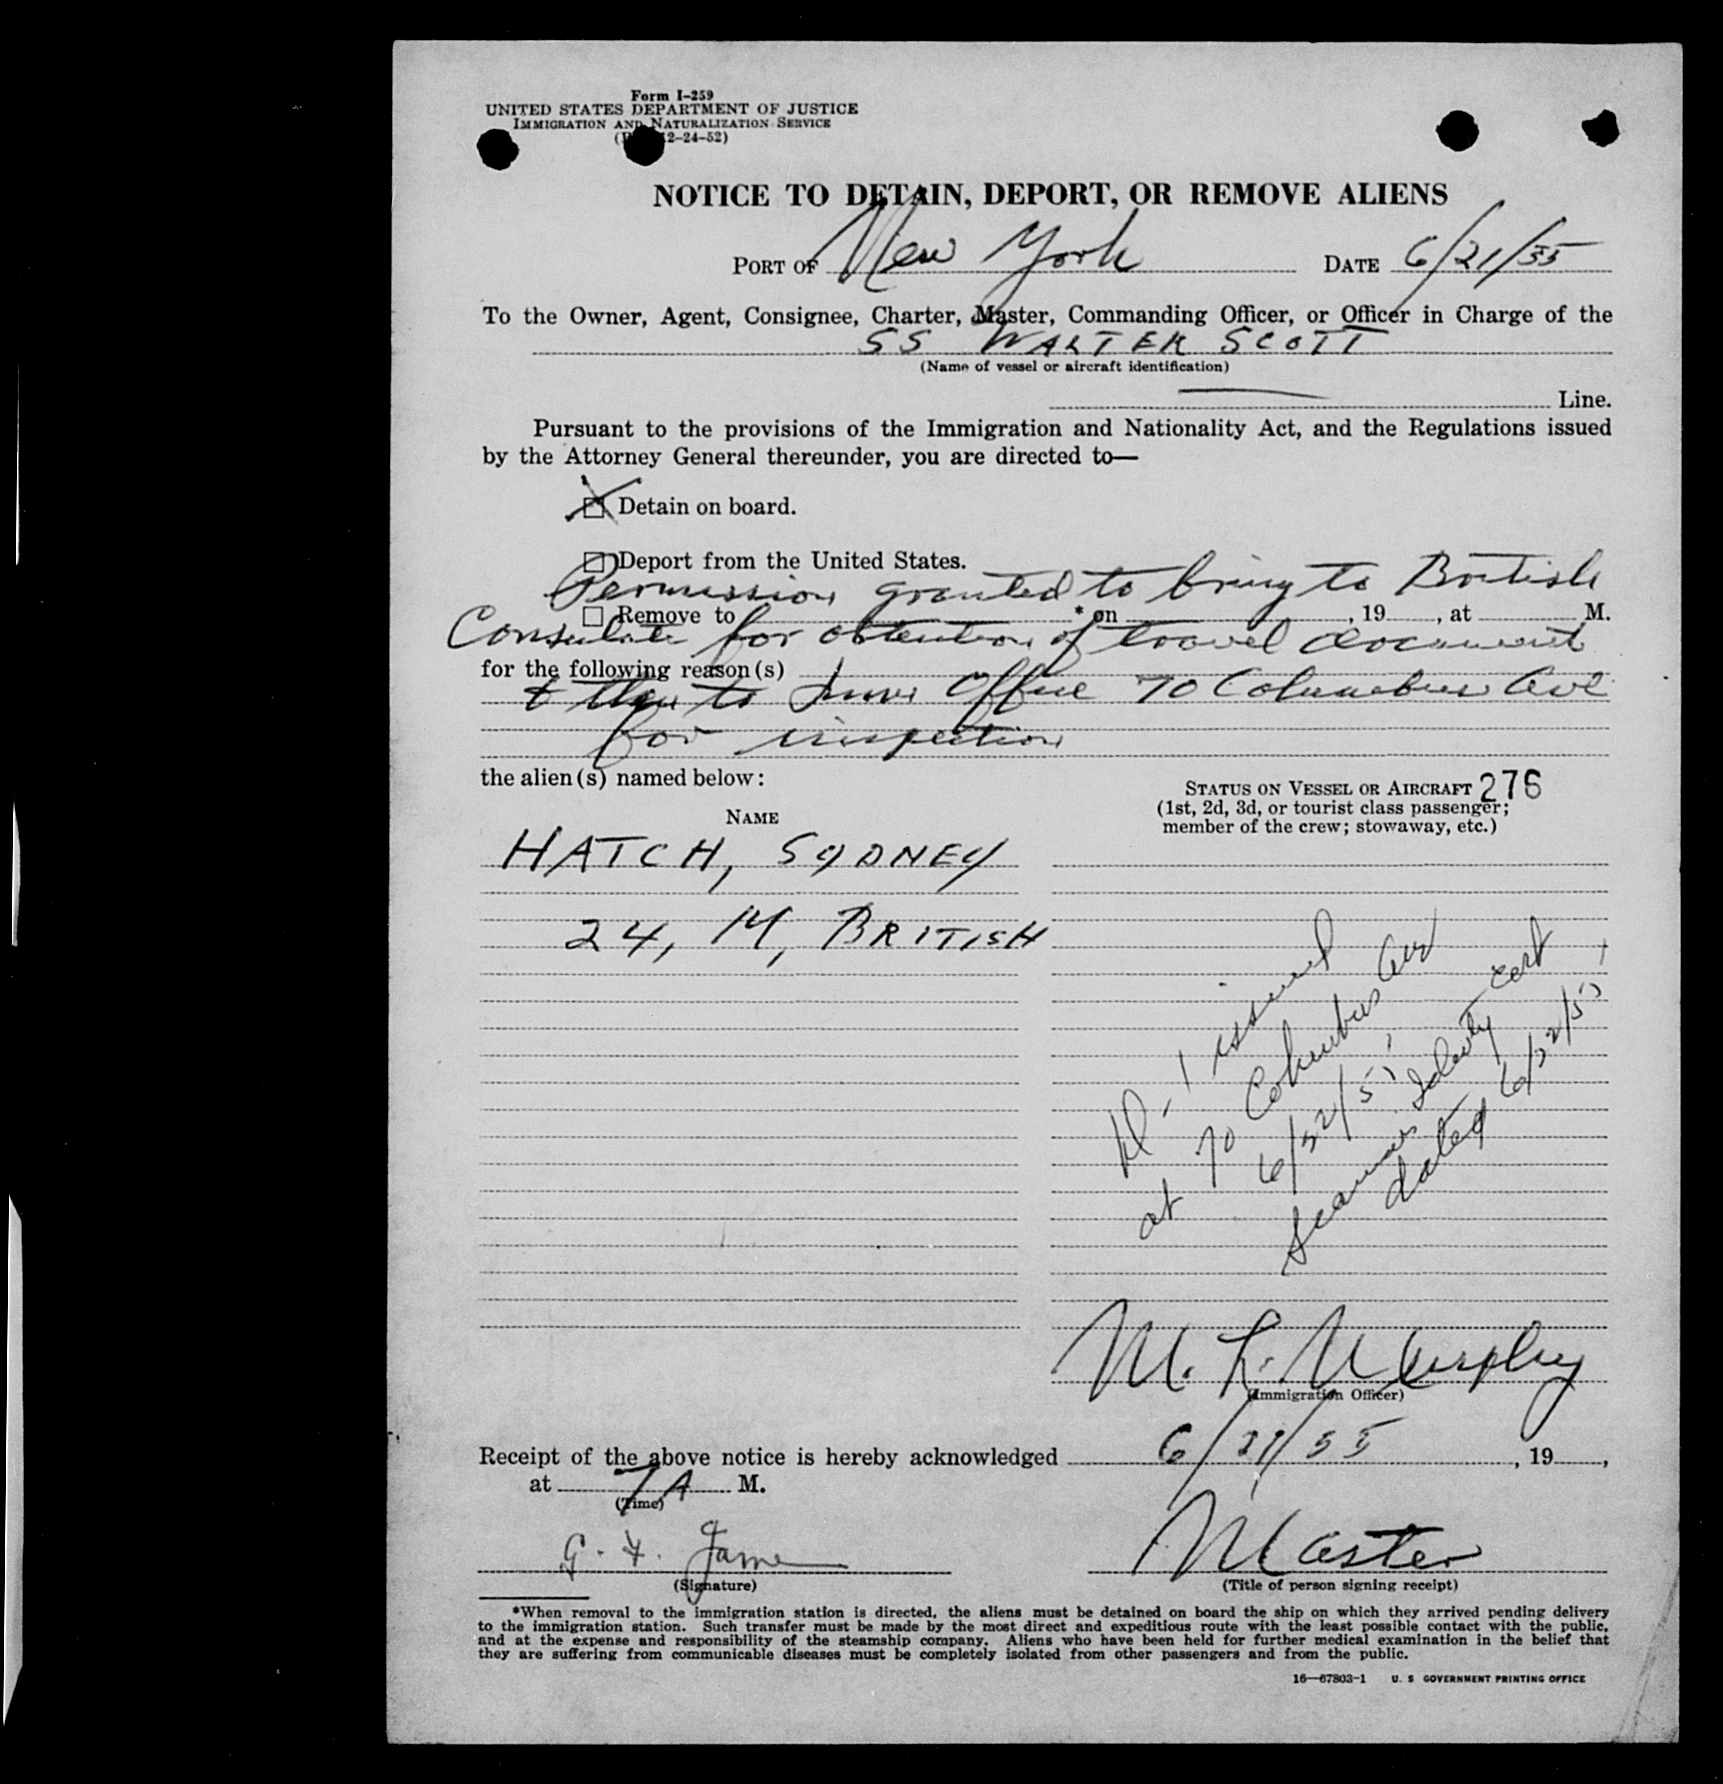 Form I-259
UNITED STATES DEPARTMENT OF JUSTICE
IMMIGRATION AND NATURALIZATION SERVICE
12-24-52)
NOTICE TO DETAIN, DEPORT, OR REMOVE ALIENS
PORT OF New York DATE 6/21/55
To the Owner, Agent, Consignee, Charter, Master, Commanding Officer, or Officer in Charge of the
SS WALTER SCOTT
(Name of vessel or aircraft identification)
Line.
Pursuant to the provisions of the Immigration and Nationality Act, and the Regulations issued
by the Attorney General thereunder, you are directed to—
Detain on board.
Deport from the United States.
Permission granted to bring to British
Remove to * on , 19 , at M.
Consulate for obtention of travel document
for the following reason(s)
& then to Imm Office 70 Columbus Ave
for inspection
the alien(s) named below:
STATUS ON VESSEL OR AIRCRAFT 276
(1st, 2d, 3d, or tourist class passenger;
member of the crew; stowaway, etc.)
NAME
HATCH, SYDNEY
24, M, BRITISH
D-1 issued
at 70 Columbus Ave
6/22/55
Seamans Identity cert
dated 6/22/55
M. L. Murphy
(Immigration Officer)
Receipt of the above notice is hereby acknowledged 6/21/55, 19 ,
at 7 A M.
(Time)
G. F. Master
(Signature) (Title of person signing receipt)
*When removal to the immigration station is directed, the aliens must be detained on board the ship on which they arrived pending delivery
to the immigration station. Such transfer must be made by the most direct and expeditious route with the least possible contact with the public,
and at the expense and responsibility of the steamship company. Aliens who have been held for further medical examination in the belief that
they are suffering from communicable diseases must be completely isolated from other passengers and from the public.
16—67803-1 U. S GOVERNMENT PRINTING OFFICE